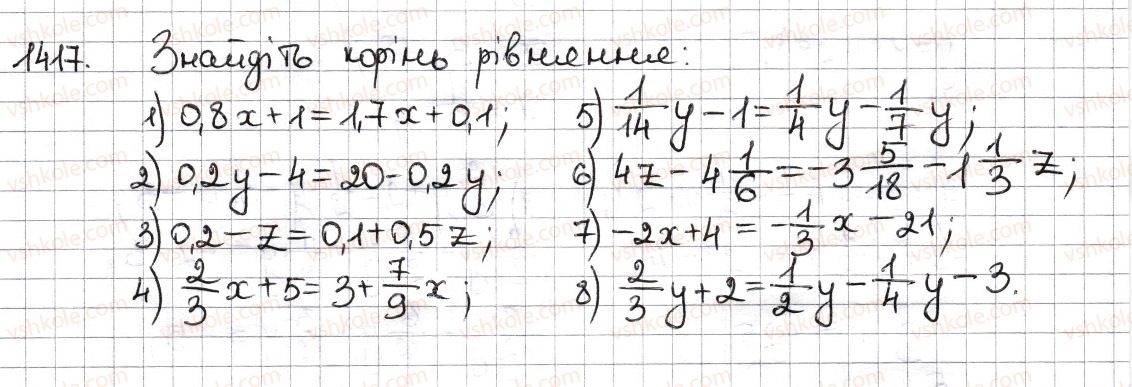 1417. Знайдіть корінь рівняння:
1) 0,8x+1=1,7x+0,1; 5) 1/14 y − 1 = 1/4 y − 1/7 y;
2) 0,2y−4=20−0,2y; 6) 4z − 4 1/6 = −3 5/18 − 1 1/3 z;
3) 0,2−z=0,1+0,5z; 7) −2x+4 = −1/3 x − 21;
4) 2/3 x+5=3+7/9 x; 8) 2/3 y+2=1/2 y−1/4 y−3.